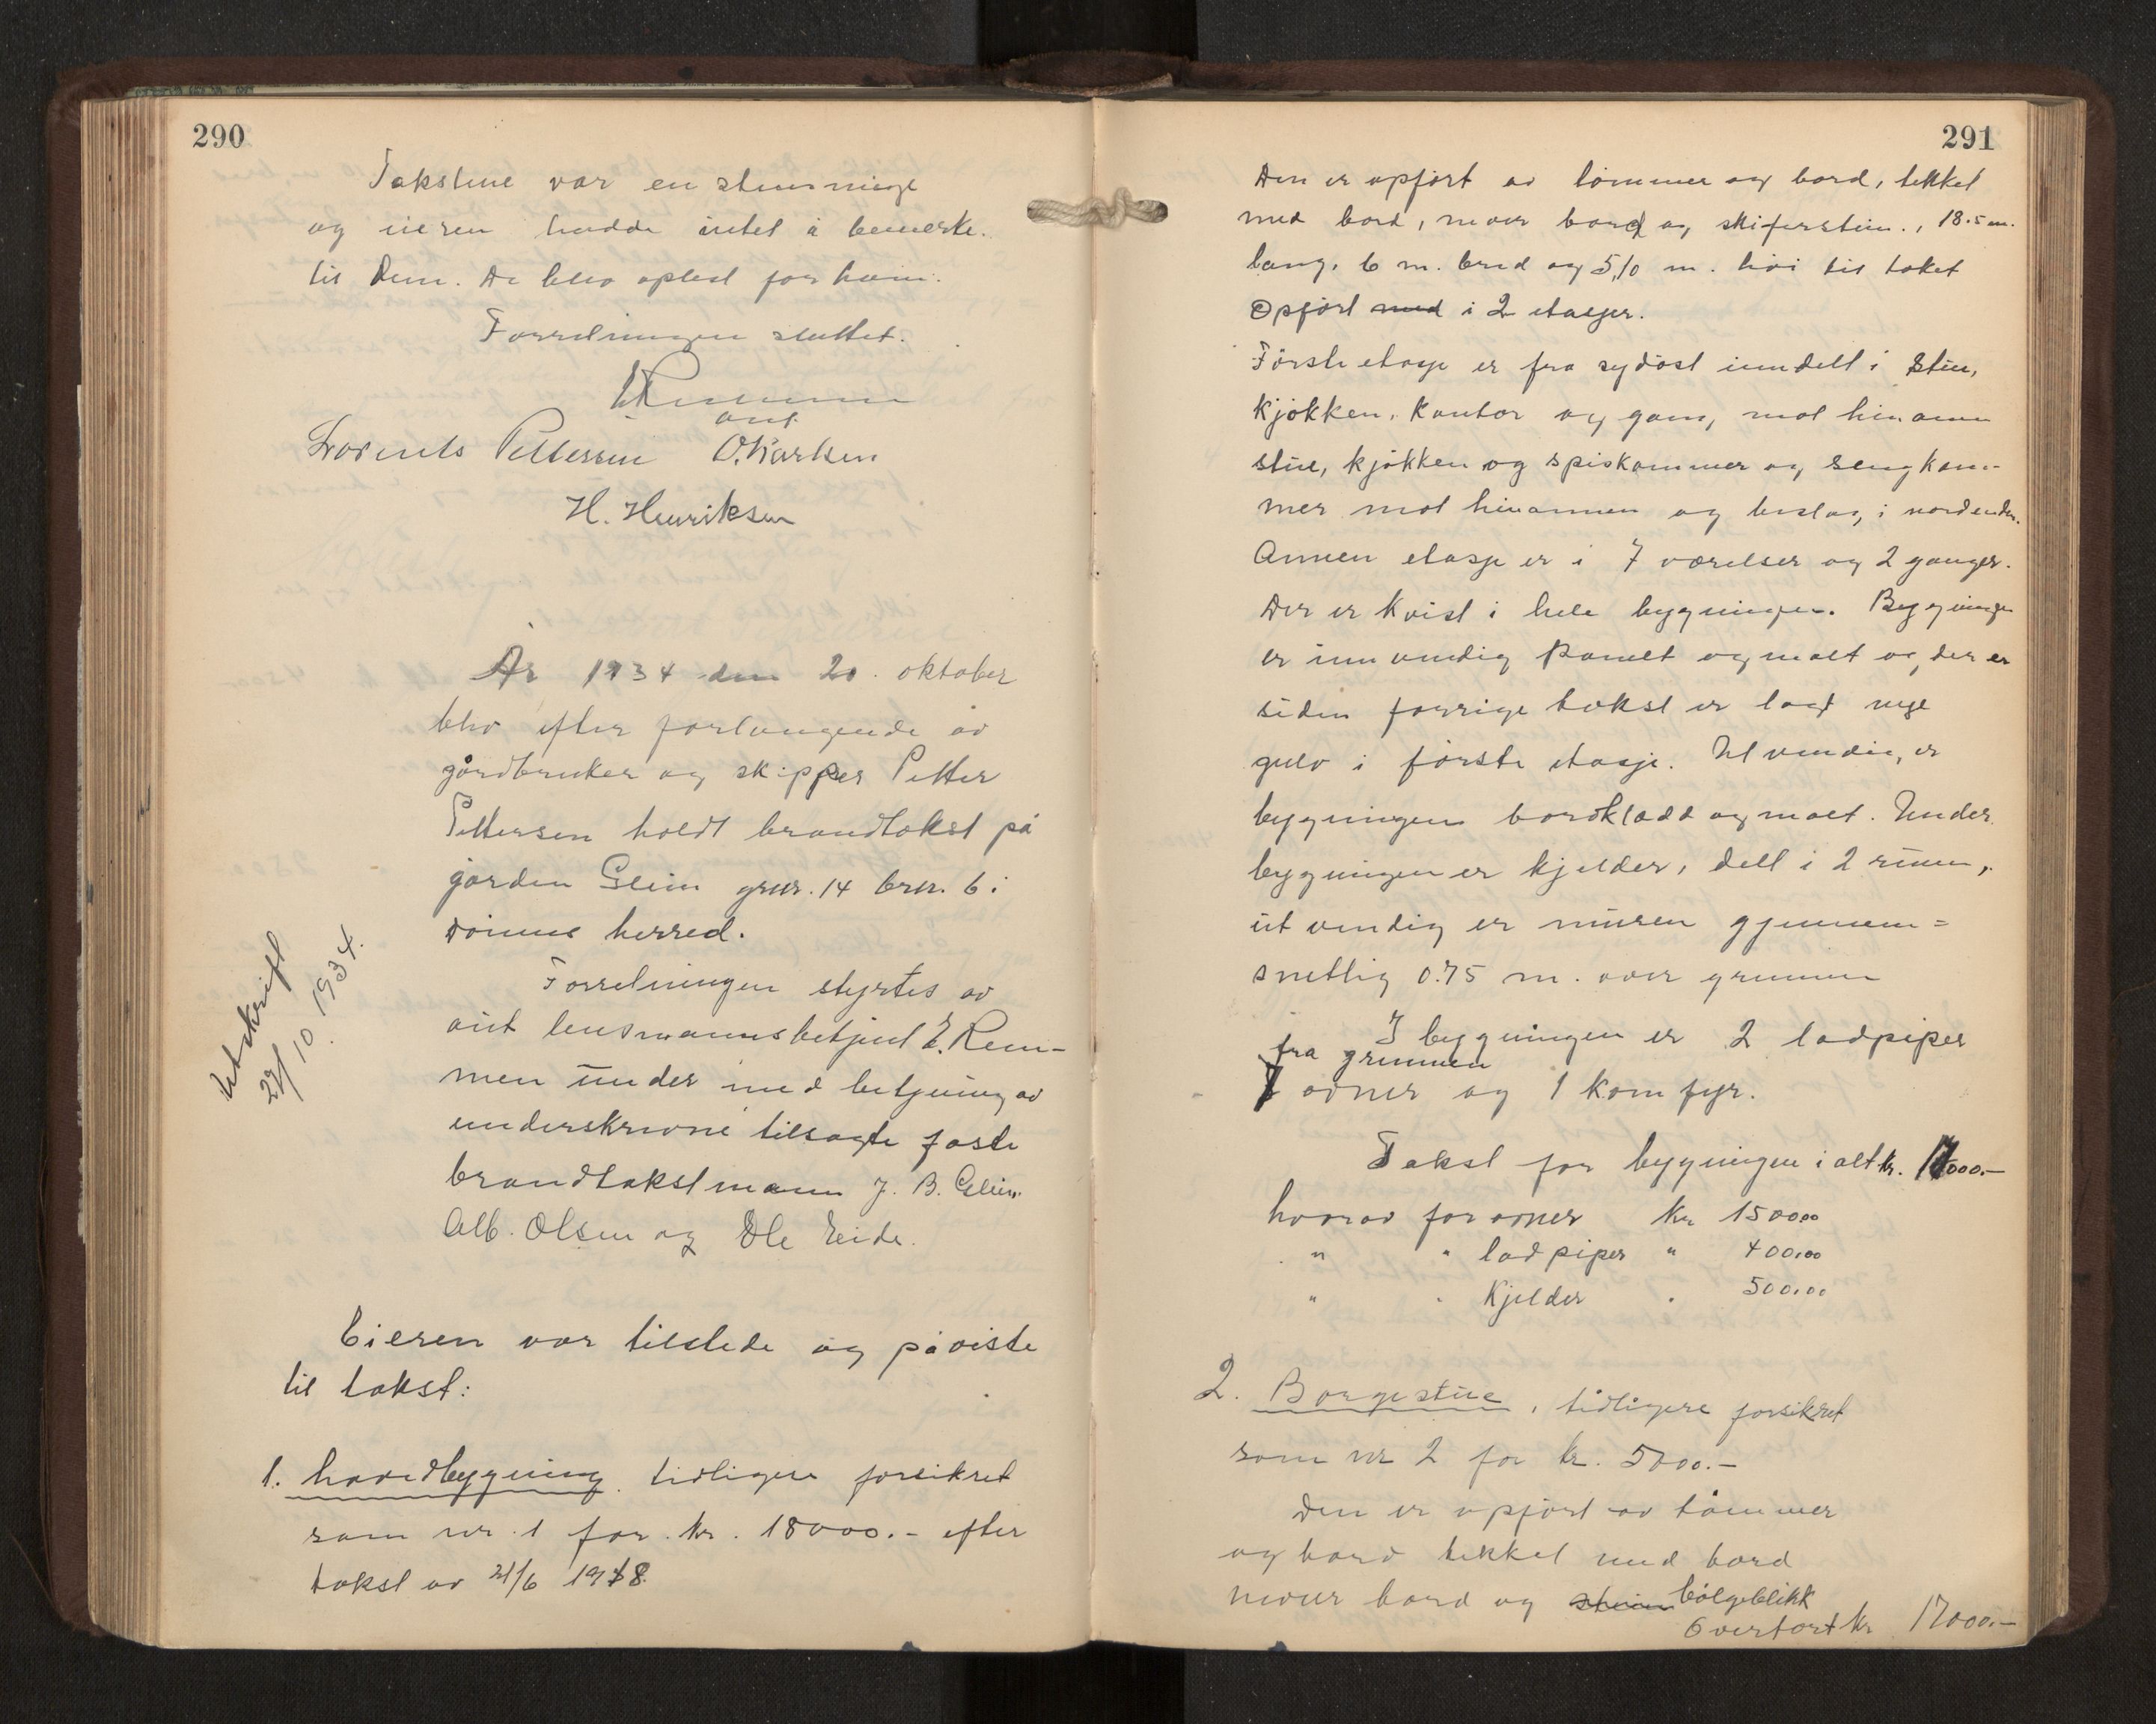 290
Takstene var enstemmige
og eieren hadde intet å bemerke.
til dem. De blev oplest for ham.
Forretningen sluttet.
E Remmen
aut
Lorents Pettersen O. Karlsen
H. Henriksen
År 1934 den 20. oktober
blev efter forlangende av
gårdbruker og skipper Petter
Pettersen holdt brandtakst på
gården Glein gnr. 14 brn. 6 i
Dønnes herred.
Forretningen styrtes av
aut lensmannsbetjent E. Rem-
men under med betjening av
underskrevne tilsagte faste
brandtakstmenn J. B. Glein.
Alb. Olsen og Ole Eide.
Utskrift
22/10 1934.
Eieren var tilstede og påviste
til takst:
1. hovedbygning. tidligere forsikret
som nr. 1 for kr. 18000.- efter
takst av 21/6 1918.
291
Den er opført av tømmer og bord, tekket
med bord, never bord og skiferstein., 18.5 m.
lang, 6 m. bred og 5,10 m. høi til taket
Opført med i 2 etasjer.
Første etasje er fra sydøst inndelt i stue,
kjøkken, kontor og gang, mot hinannen
stue, kjøkken og spiskammer og sengkam-
mer mot hinannen og bislag i nordenden.
Annen etasje er i 7 værelser og 2 ganger.
Der er kvist i hele bygningen. Bygningen
er innvendig panelt og malt og der er
siden forrige takst er lagt nye
gulv i første etasje. Utvendig er
bygningen bordklædd og malt. Under
bygningen er kjelder, delt i 2 rum,
utvendig er muren gjennem-
snetlig 0.75 m. over grunnen
I bygningen er 2 ladpiper
fra grunnen
7 ovner og 1 komfyr.
Takst for bygningen i alt kr. 17000.-
hvorav for ovner kr 1500.00
" " ladpiper " 400.00
" " kjelder " 500.00
2. Borgestue, tidligere forsikret
som nr 2 for kr. 5000.-
Den er opført av tømmer
og bord tekket med bord
never bord og stein bølgeblikk
Overført kr 17000.-